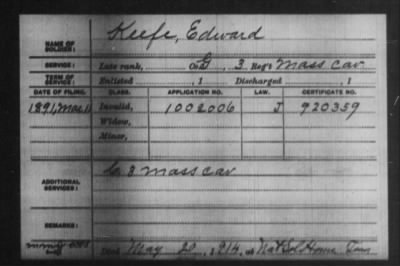 NAME OF SOLDIER: Keefe, Edward
SERVICE: Late rank, Co. G, 3 Reg't Mass Cav
TERM OF SERVICE: Enlisted , 1 Discharged , 1
DATE OF FILING. CLASS. APPLICATION NO. LAW. CERTIFICATE NO.
1891, Mar 11 Invalid, 1002006 J 920359
Widow,
Minor,
ADDITIONAL SERVICES: G 3 Mass Cav
REMARKS:
Died May 20, 1914, at Nat Sol Home Tenn